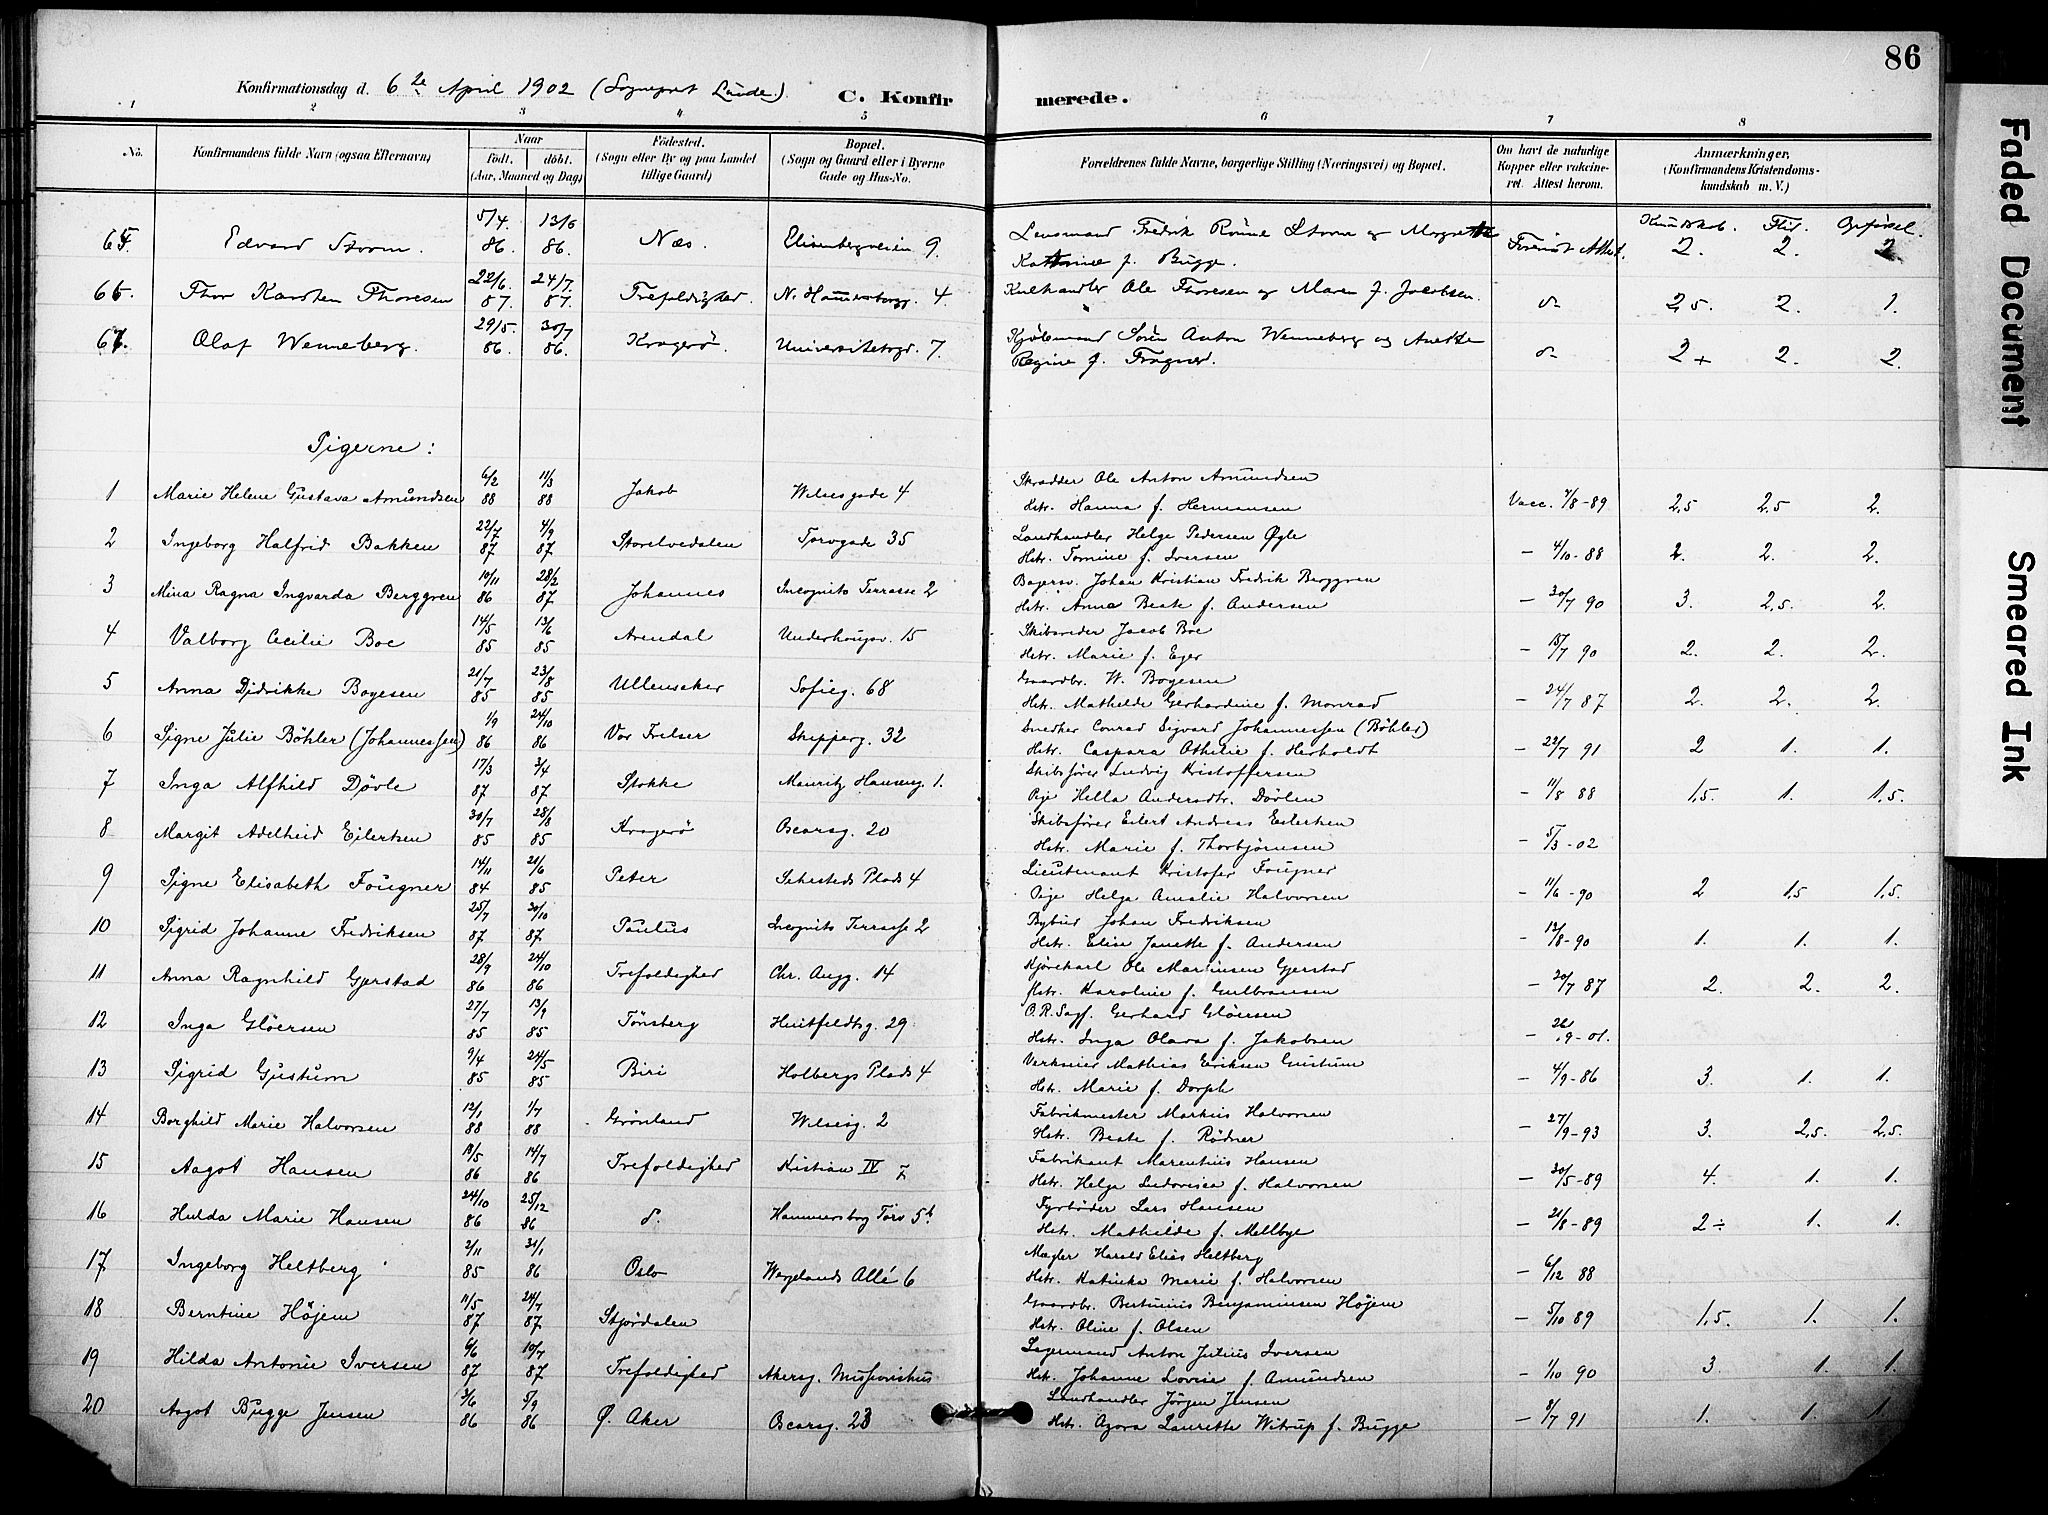 86
Konfirmationsdag d. 6te April 1902 (Sogneprst Lunde.)
C. Konfirmerede.
1 2 3 4 5 6 7 8
No.
Konfirmandens fulde Navn (ogsaa Efternavn)
Naar
födt. döbt.
(Aar, Maaned og Dag)
Födested.
(Sogn eller By og paa Landet
tillige Gaard)
Bopæl.
(Sogn og Gaard eller i Byerne
Gade og Hus-No.
Forældrenes fulde Navne, borgerlige Stilling (Næringsvei) og Bopæl.
Om havt de naturlige
Kopper eller vakcine-
ret. Attest herom.
Anmærkninger.
(Konfirmandens Kristendoms-
kundskab m. V.)
Kundskab. Flid. Opførsel.
65. Edvard Storm. 5/4 86. 13/6 86. Næs. Elisenbergveien 9. Lensmand Fredrik Rønne Storm og Margrethe
Kathrine f. Bugge. Forevist Attest. 2. 2. 2
66. Thor Karsten Thoresen 22/6. 87. 24/7. 87. Trefoldighed. N. Hammersborgg. 4. Kulhandler Ole Thoresen og Maren f. Jacobsen. 2,5. 2. 1.
67. Olaf Wenneberg. 29/5. 86. 30/7 86. Kragerö. Universitetsgd. 7. Kjøbmand Sörn Anton Wenneberg og Anette
Regine f. Fragner. 2+ 2. 2.
Pigerne:
1 Marie Helene Gustava Amundsen 6/2 88 11/3 88 Jakob Welsesgade 4 Skrædder Ole Anton Amundsen
Hstr. Hanna f. Hermansen Vacc. 7/8-89 2,5 2,5 2.
2 Ingeborg Halfrid Bakken 22/7 87 4/9 87 Storelvedalen Torvgade 35 Landhandler Helge Pedersen Øgle
Hstr. Tomine f. Iversen - 4/10-88 2. 2. 2.
3 Mina Ragna Ingvarda Berggren 10/11 86 28/2 87 Johannes Incognito Terrasse 2 Bagersv. Johan Kristian Fredrik Berggren
Hstr. Anna Beate f. Andersen - 30/7 90 3. 2,5. 2.
4 Valborg Cecilie Boe 14/5 85 13/6 85 Arendal Underhaugsv. 15 Skibsreder Jacob Boe
Hstr. Marie f. Eger - 15/7 90 2. 2. 2.
5 Anna Didrikke Boyesen 21/7 85 23/8 85 Ullensaker Sofieg. 68 Gaardbr. W. Boyesen
Hstr. Mathilde Gerhardine f. Monrad - 24/7 87 2. 2. 2
6 Signe Julie Böhler (Johannessen) 1/9 86 24/10 86 Vor Frelser Skipperg. 32 Snedker Conrad Sigvard Johannessen (Böhler)
Hstr. Caspara Othilie f. Herholdt - 22/7 91 2 1. 1.
7 Inga Alfhild Dövle 17/3 87 3/4 87 Stokke Mauritz Hanseng. 1. Skibsfører Ludvig Kristoffersen
Pige Hella Andersdtr. Dövlen - 11/8 88 1,5. 1. 1,5.
8 Margit Adelheid Eilertsen 30/7 85 28/8 85 Kragerö Oscarsg. 20 Skibsfører Eilert Andreas Eilertsen
Hstr. Marie f. Thorbjörnsen - 5/3-02
9 Signe Elisabeth Fougner 14/11 84 21/6 85 Peter Sehesteds Plads 4 Lieutenant Kristofer Fougner
Pige Helga Amalie Halvorsen - 11/6-90 2 1,5 1,5.
10 Sigrid Johanne Fredriksen 25/7 87 30/10 87 Paulus Incognito Terrasse 2 Bybud Johan Fredriksen
Hstr. Elise Janette f. Andersen - 12/8-90 1. 1. 1.
11 Anna Ragnhild Gjerstad 28/9 86 24/10 86 Trefoldighed Chr. Augg. 14 Kjørekarl Ole Martinsen Gjerstad
Hstr. Karoline f. Gulbransen - 20/7 87 2. 2. 2.
12 Inga Glöersen 27/7 85 13/9 85 Tönsberg Huitfeldtsg. 29 O.R.Sagf. Gerhard Glöersen
Hstr. Inga Olava f. Jakobsen - 26/9-01.
13 Sigrid Gustum 9/4 85 24/5 85 Biri Holbergs Plads 4 Verkseier Mathias Eriksen Gustum
Hstr. Marie f. Dorph - 4/9-86 3. 1. 1.
14 Borghild Marie Halvorsen 12/1 88 1/7 88 Grönland Welsesg. 2 Fabrikmester Markus Halvorsen
Hstr. Beate f. Rödner - 27/9-93 3. 2,5. 2,5.
15 Aagot Hansen 19/5 86 14/7 86 Trefoldighed Kristian IV 7 Fabrikant Marentius Hansen
Hstr. Helga Ludovica f. Halvorsen - 30/5-89 4. 1. 1.
16 Hulda Marie Hansen 24/10 86 25/12 86 d. Hammersbog Torv 5b Fyrbøder Lars Hansen
Hstr. Mathilde f. Mellbye - 21/8-89 2÷ 1. 1.
17 Ingeborg Heltberg 2/11 85 31/1 86 Oslo Wergelands Allé 6 Mægler Harald Elias Heltberg
Hstr. Katinka Marie f. Halvorsen - 6/12 88
18 Berntine Höjem 11/5 87 24/7 87. Stjördalen Gaardbr. Bertinius Benjaminsen Höjem
Hstr. Oline f. Olsen - 5/10 89 1,5. 1. 1.
19 Hilda Antonie Iversen 6/6 87 10/7 87 Trefoldighed Akersg. Missionshus Lagermand Anton Julius Iversen
Hstr. Johanne Lovise f. Amundsen - 1/10 90 3 1. 1.
20 Aagot Bugge Jensen 3/6 86 5/9 86 Ø. Aker Oscarsg. 23 Landhandler Jörgen Jensen
Hstr. Agora Laurette Witrup f. Bugge - 8/7 91 1. 1. 1.
Faded Document
Smeared Ink